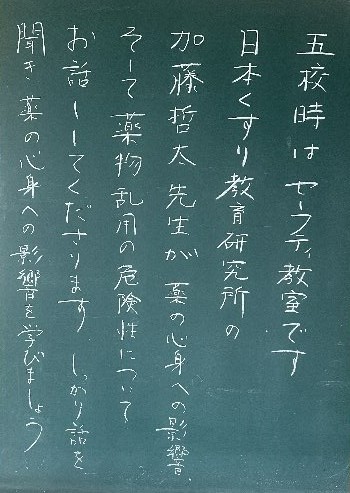 五校時は セーフティ教室です
日本くすり教育研究所の
加藤哲太先生が 薬の心身への影響、
そして薬物乱用の危険性について
お話ししてくださります しっかり話を
聞き薬の心身への影響を学びましょう